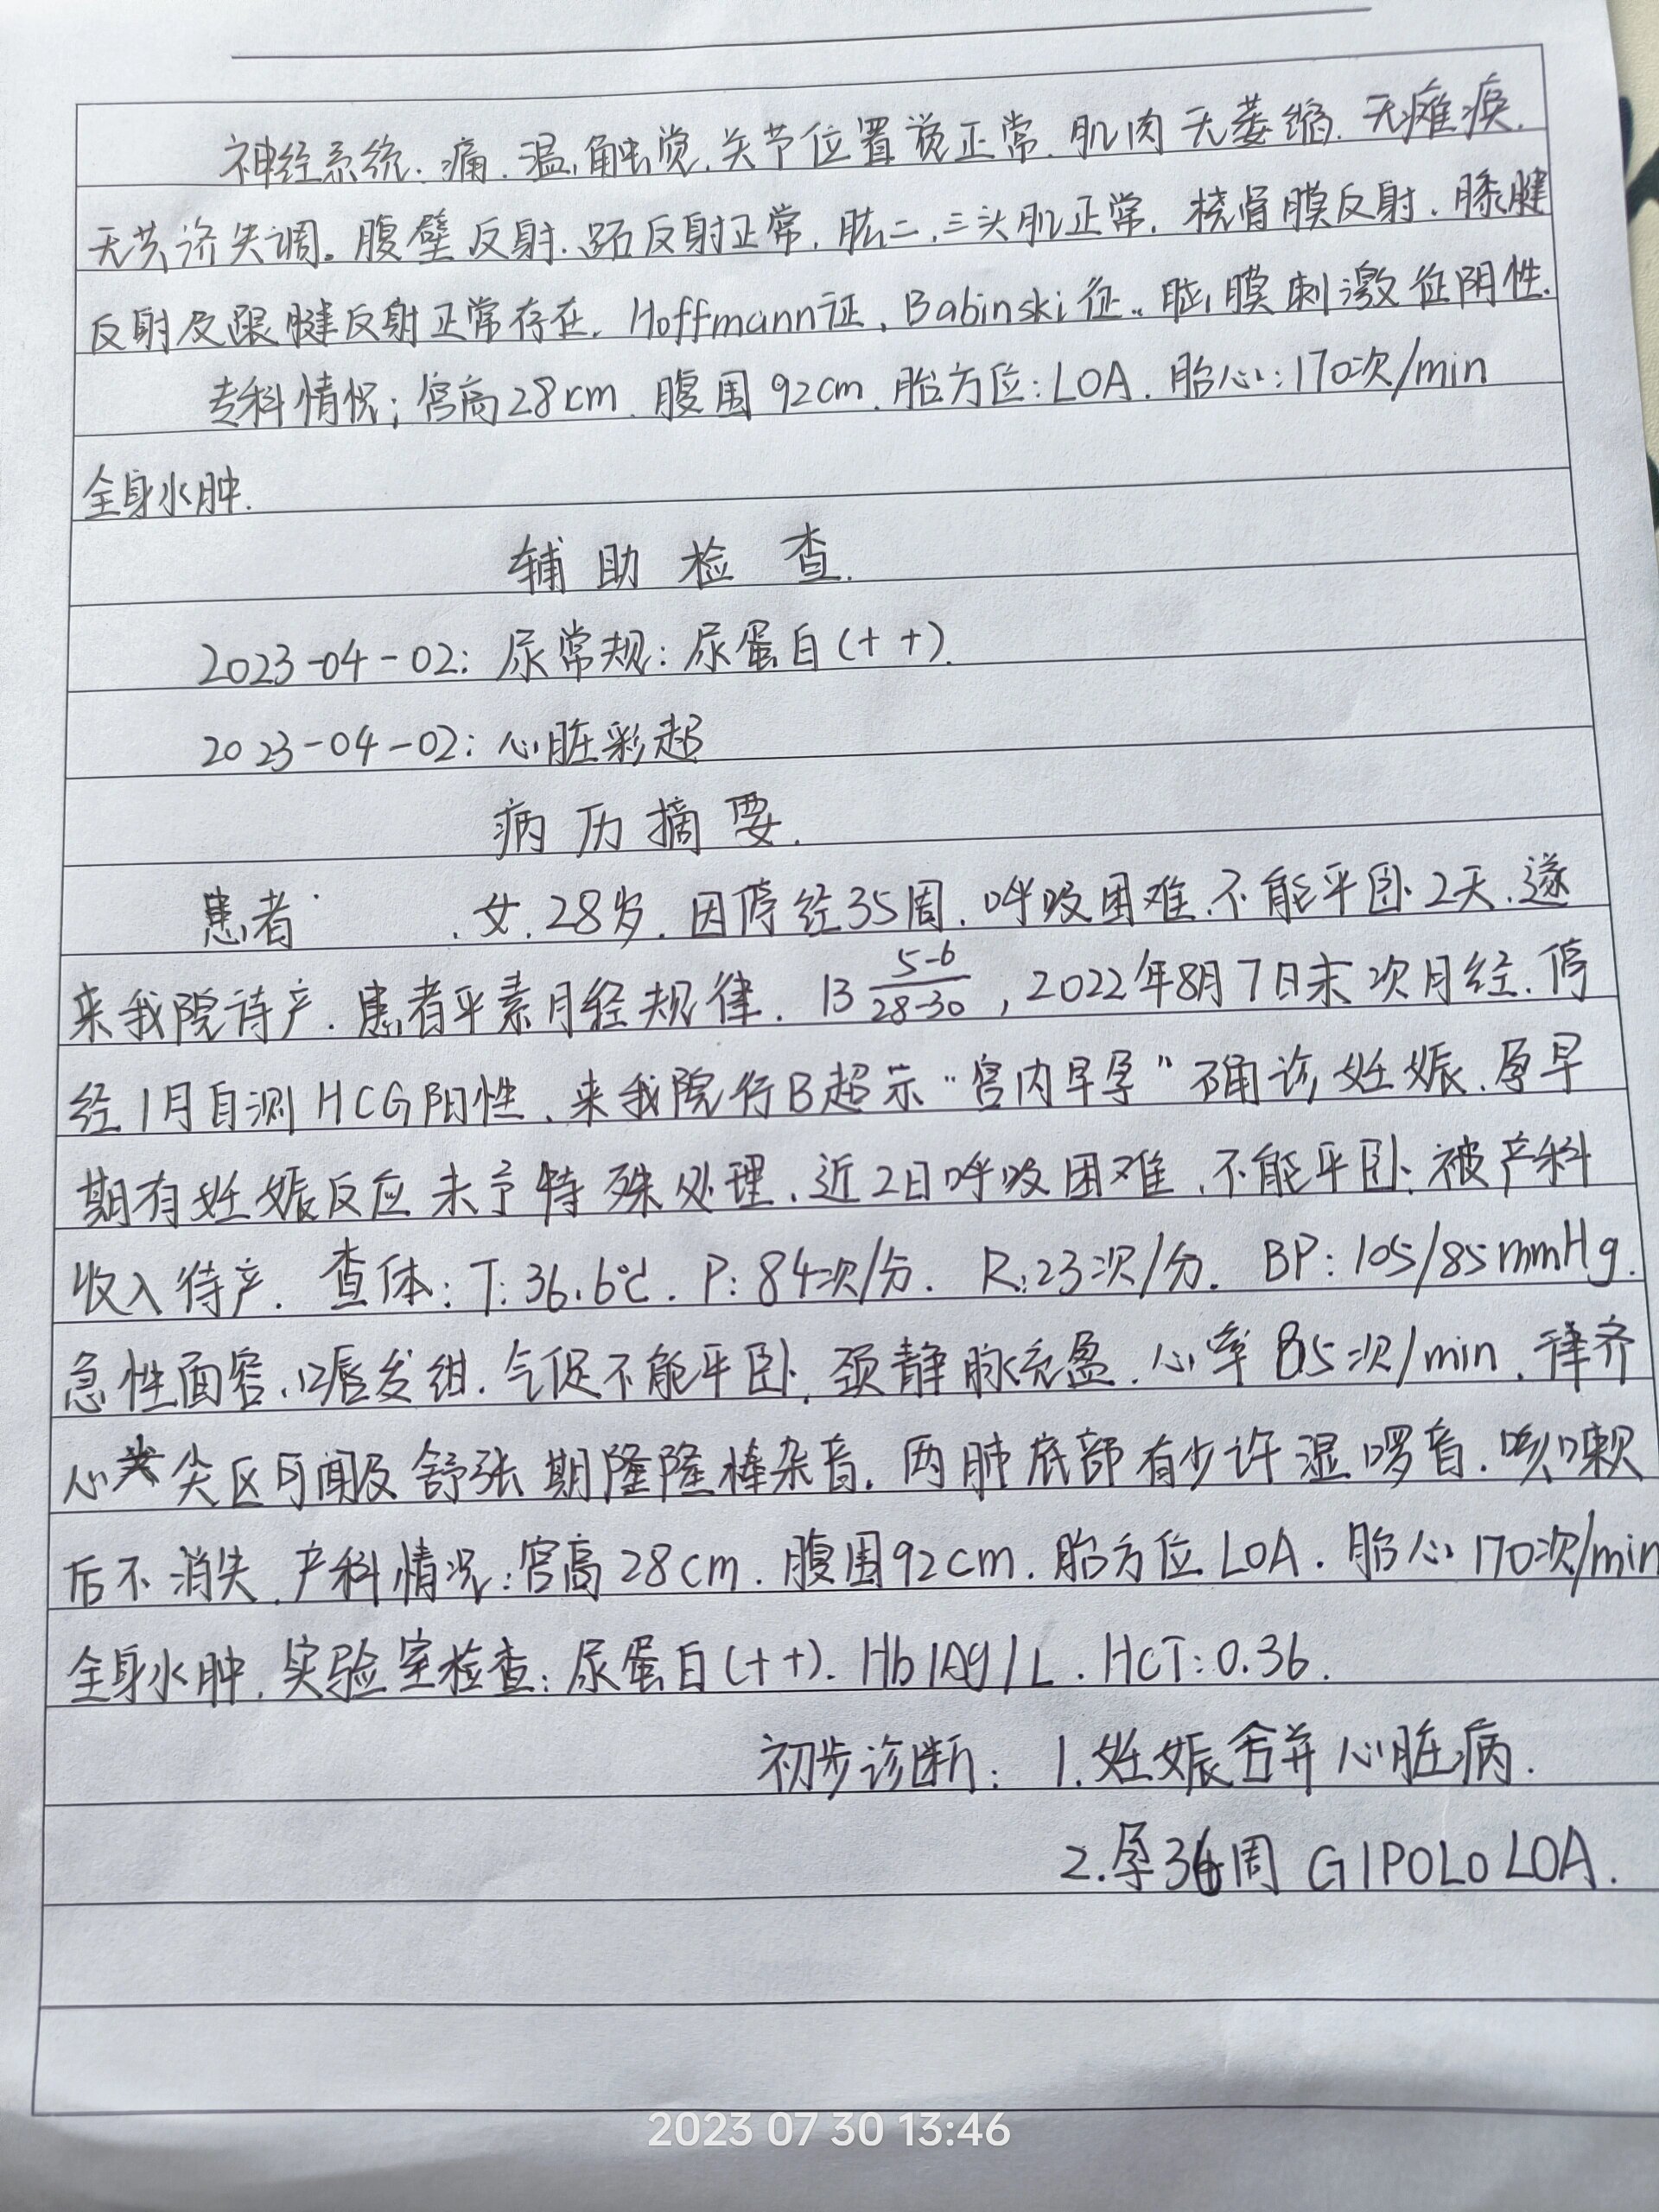 神经系统：痛、温、触觉、关节位置觉正常、肌肉无萎缩、无瘫痪、
无共济失调。腹壁反射、跖反射正常，肱二、三头肌正常，桡骨膜反射、膝腱
反射及跟腱反射正常存在，Hoffmann证、Babinski征、脑膜刺激征阴性.
专科情况：宫高28cm、腹围92cm、胎方位：LOA、胎心：170次/min
全身水肿.
辅助检查.
2023-04-02：尿常规：尿蛋白(++).
2023-04-02：心脏彩超
病历摘要.
患者 、女、28岁、因停经35周、呼吸困难、不能平卧2天、遂
来我院待产、患者平素月经规律、13 5-6/28-30，2022年8月7日末次月经、停
经1月自测HCG阳性、来我院行B超示"宫内早孕"确诊妊娠、孕早
期有妊娠反应未予特殊处理、近2日呼吸困难、不能平卧、被产科
收入待产. 查体：T：36.6℃. P：84次/分. R：23次/分. BP：105/85mmHg.
急性面容、口唇发绀、气促不能平卧、颈静脉充盈、心率85次/min、律齐
心尖区可闻及舒张期隆隆样杂音、两肺底部有少许湿啰音、咳嗽
后不消失、产科情况：宫高28cm、腹围92cm、胎方位LOA、胎心170次/min
全身水肿、实验室检查：尿蛋白(++). Hb g/L. HCT：0.36.
初步诊断： 1.妊娠合并心脏病.
2.孕 周 G1P0L0 LOA.
2023 07 30 13:46